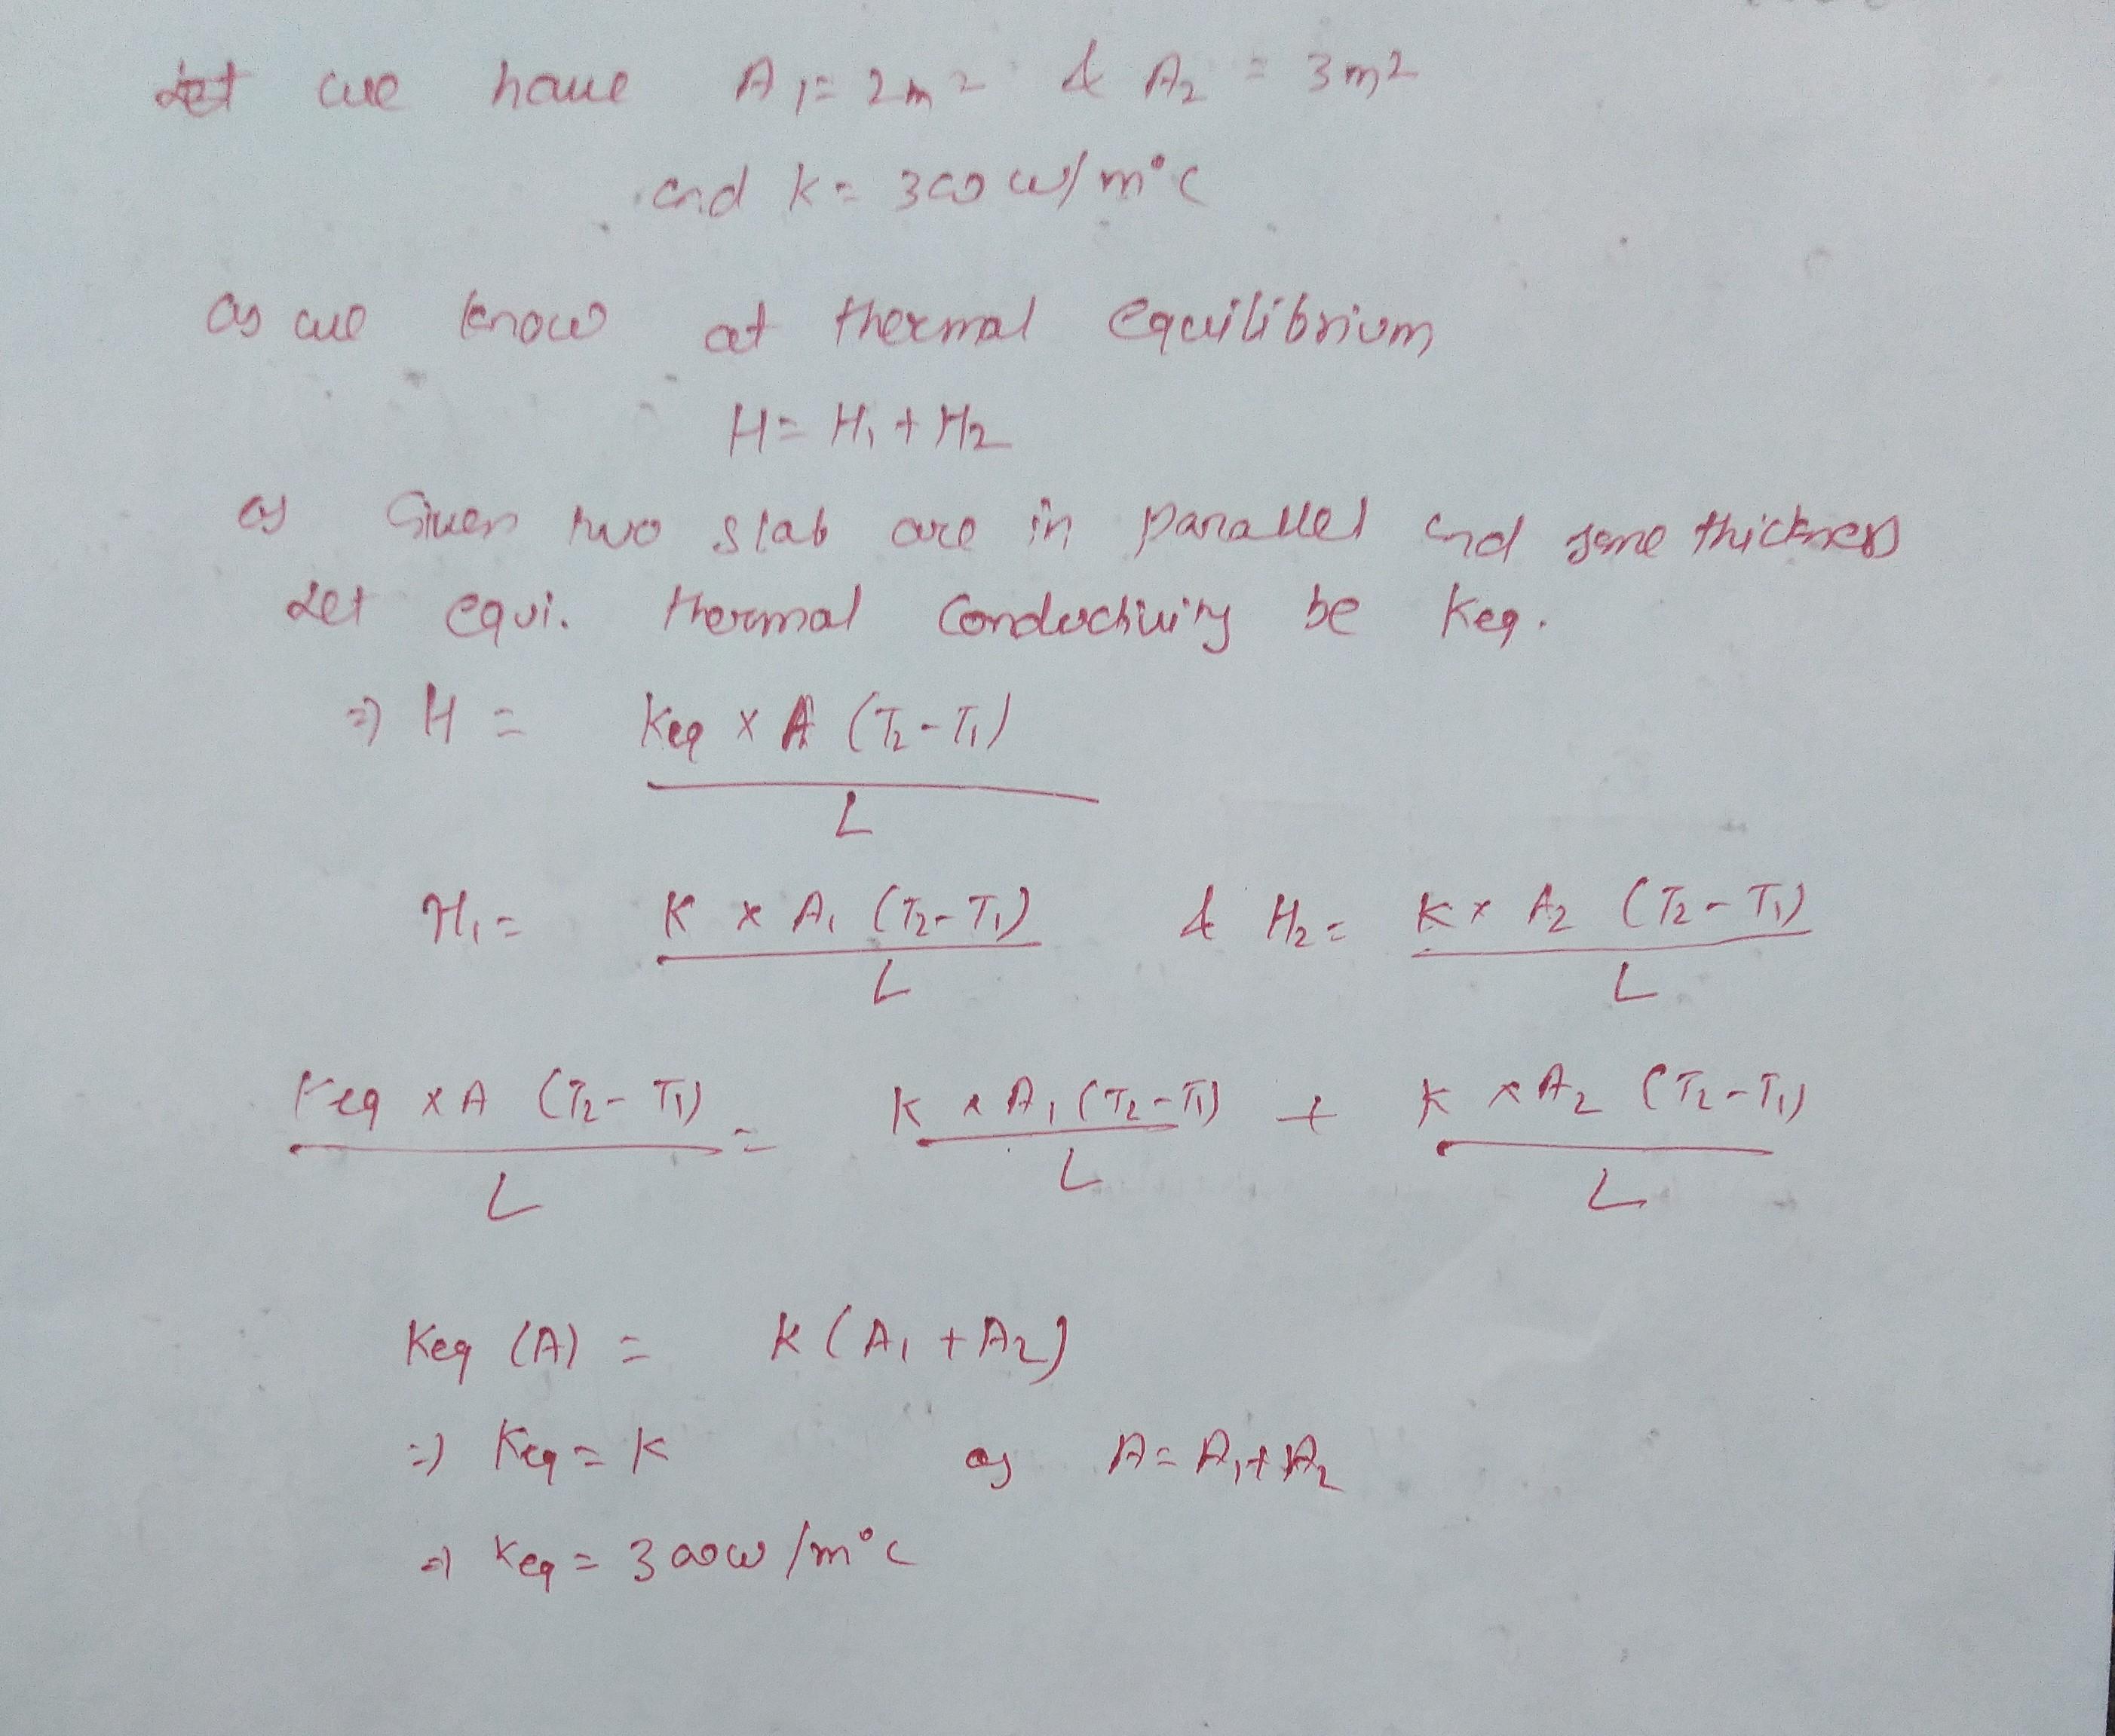 Let we have A1 = 2m2 & A2 = 3m2
and K = 300 w/m°c
as we know at thermal equilibrium
H = H1 + H2
as Given two slab are in parallel and same thickness
Let equi. thermal Conductivity be Keq.
=> H = Keq x A (T2-T1) / L
H1 = K x A1 (T2-T1) / L & H2 = K x A2 (T2-T1) / L
Keq x A (T2-T1) / L = K x A1 (T2-T1) / L + K x A2 (T2-T1) / L
Keq (A) = K (A1 + A2)
=> Keq = K as A = A1 + A2
=> Keq = 300w/m°c